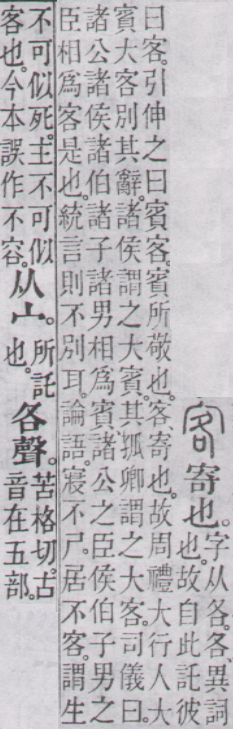 客寄也。
字从各。各、異詞
也。故自此託彼
曰客。引伸之曰賓客。賓所敬也。客、寄也。故周禮大行人大
賓大客別其辭。諸侯謂之大賓。其孤卿謂之大客。司儀曰。
諸公諸侯諸伯諸子諸男相爲賓。諸公之臣侯伯子男之
臣相爲客是也。統言則不別耳。論語。寢不尸。居不客。謂生
不可似死。主不可似
客也。今本誤作不容。
从宀。
所託
也。
各聲。
苦格切。古
音在五部。